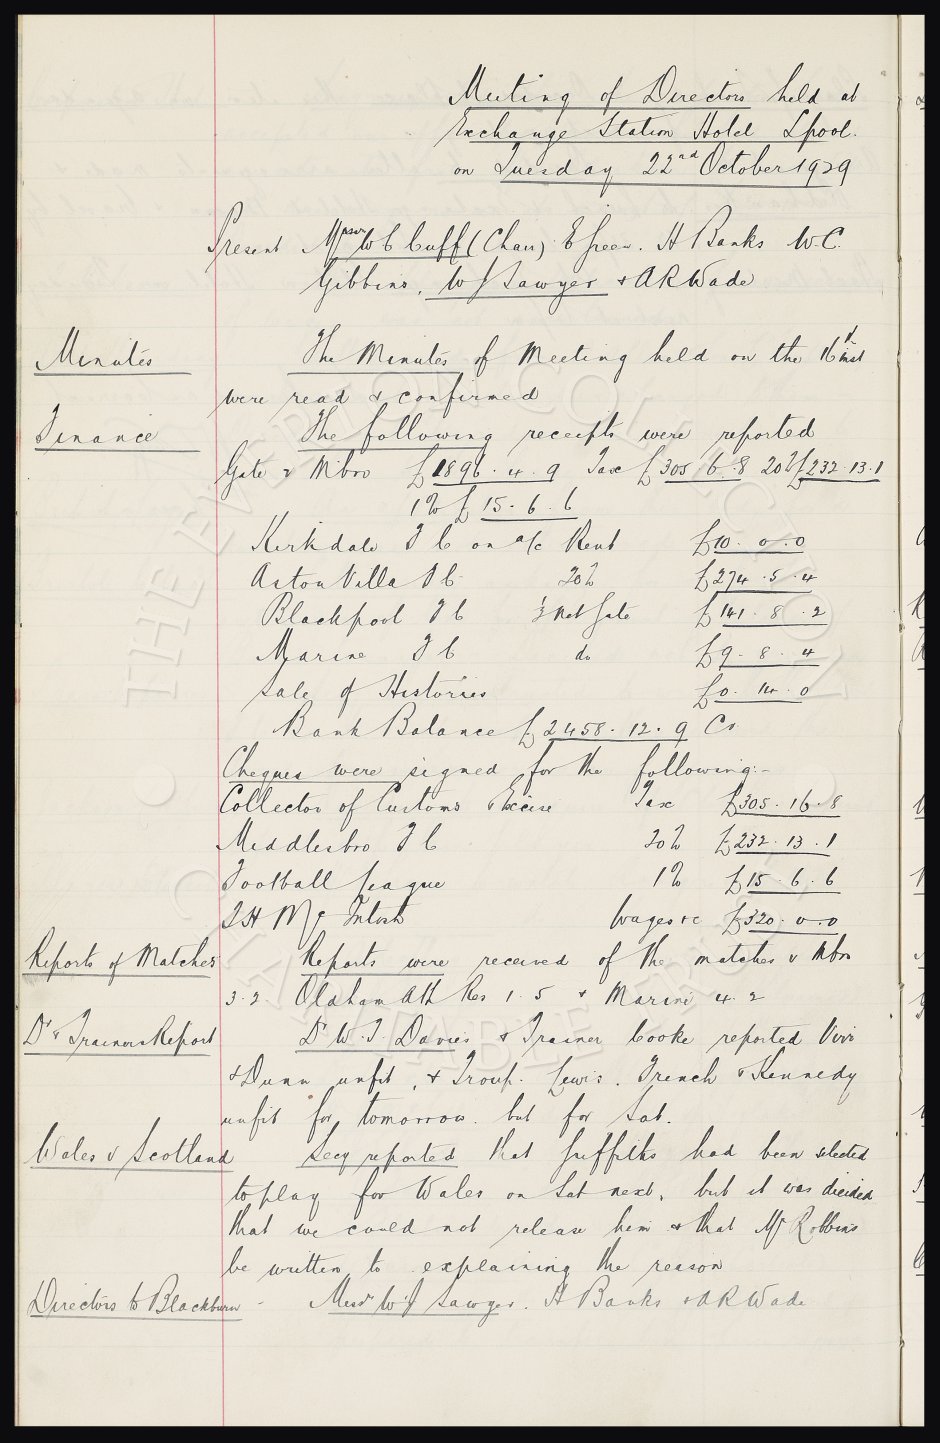 Meeting of Directors held at
Exchange Station Hotel Lpool.
on Tuesday 22nd October 1929
Present Messrs W C Cuff (Chair) E Green. H Banks W.C.
Gibbins, W J Sawyer & A R Wade
Minutes The Minutes of Meeting held on the 16th inst
were read & confirmed
Finance The following receipts were reported
Gate v Mbro £1896.4.9 Tax £305.16.8 20% £232.13.1
1% £15.6.6
Kirkdale F C on a/c Rent £10.0.0
Aston Villa F C 20% £274.5.4
Blackpool F C ½ Net Gate £141.8.2
Marine F C do £9.8.4
Sale of Histories £0.14.0
Bank Balance £2458.12.9 Cr
Cheques were signed for the following:-
Collector of Customs & Excise Tax £305.16.8
Middlesbro F C 20% £232.13.1
Football League 1% £15.6.6
T H McIntosh Wages &c £320.0.0
Reports of Matches Reports were received of the matches v Mbro
3.2 Oldham Ath Res 1.5 & Marine 4.2
Dr & Trainers Report Dr W.T. Davies & Trainer Cooke reported Virr
& Dunn unfit, & Troup. Lewis. French & Kennedy
unfit for tomorrow. but for Sat.
Wales v Scotland Secy reported that Griffiths had been selected
to play for Wales on Sat next, but it was decided
that we could not release him & that Mr Robbins
be written to explaining the reason
Directors to Blackburn - Messrs W J Sawyer. H Banks & A R Wade
THE EVERTON COLLECTION
CHARITABLE TRUST